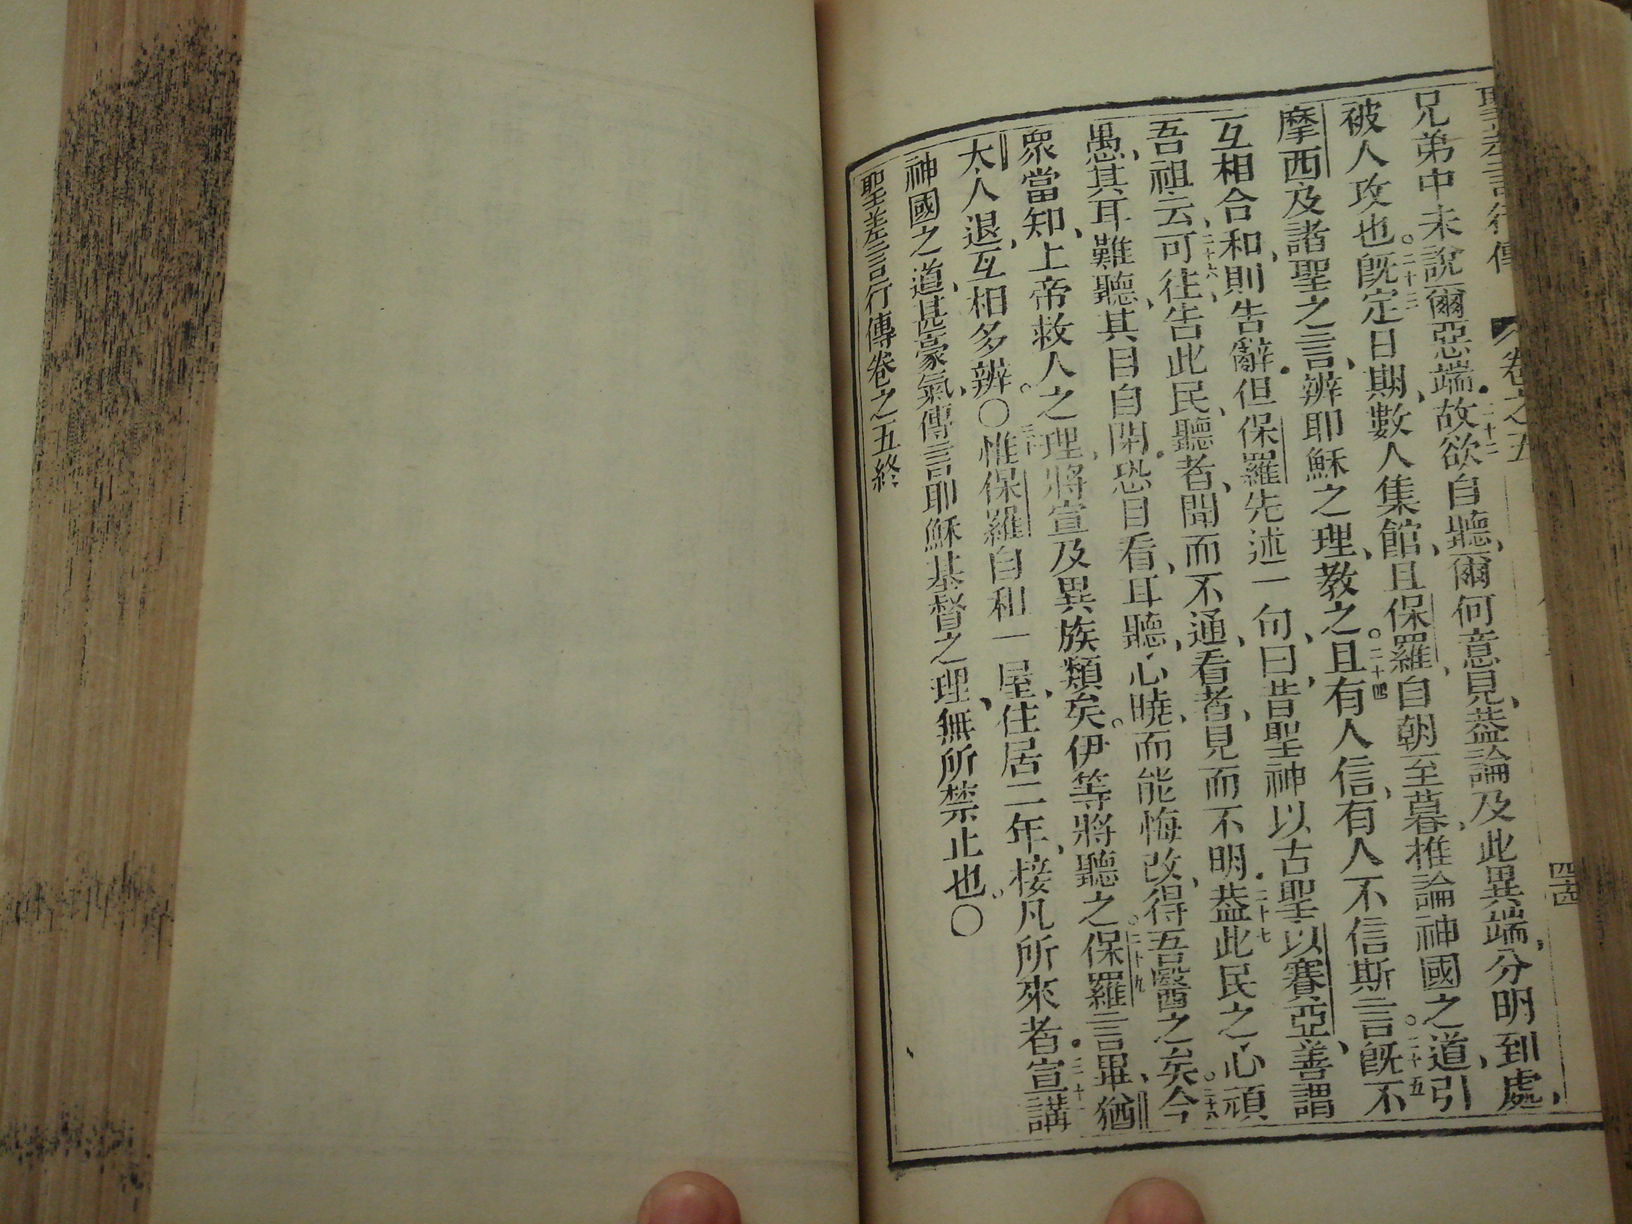 聖差言行傳 卷之五
兄弟中未說爾惡端故欲自聽爾何意見蓋論及此異端分明到處
被人攻也二十三既定日期數人集館且保羅自朝至暮推論神國之道引
摩西及諸聖之言辨耶穌之理教之二十四且有人信有人不信斯言二十五既不
互相合和則告辭但保羅先述一句曰昔聖神以古聖以賽亞善謂
吾祖云二十六可往吿此民聽者聞而不通看者見而不明二十七蓋此民之心頑
愚其耳難聽其目自閉恐目看耳聽心曉而能悔改得吾醫之矣今
衆當知上帝救人之理將宣及異族類矣伊等將聽之二十九保羅言畢猶
太人退互相多辨〇惟保羅自和一屋住居二年接凡所來者宣講
神國之道甚豪氣傳言耶穌基督之理無所禁止也〇
聖差言行傳卷之五終